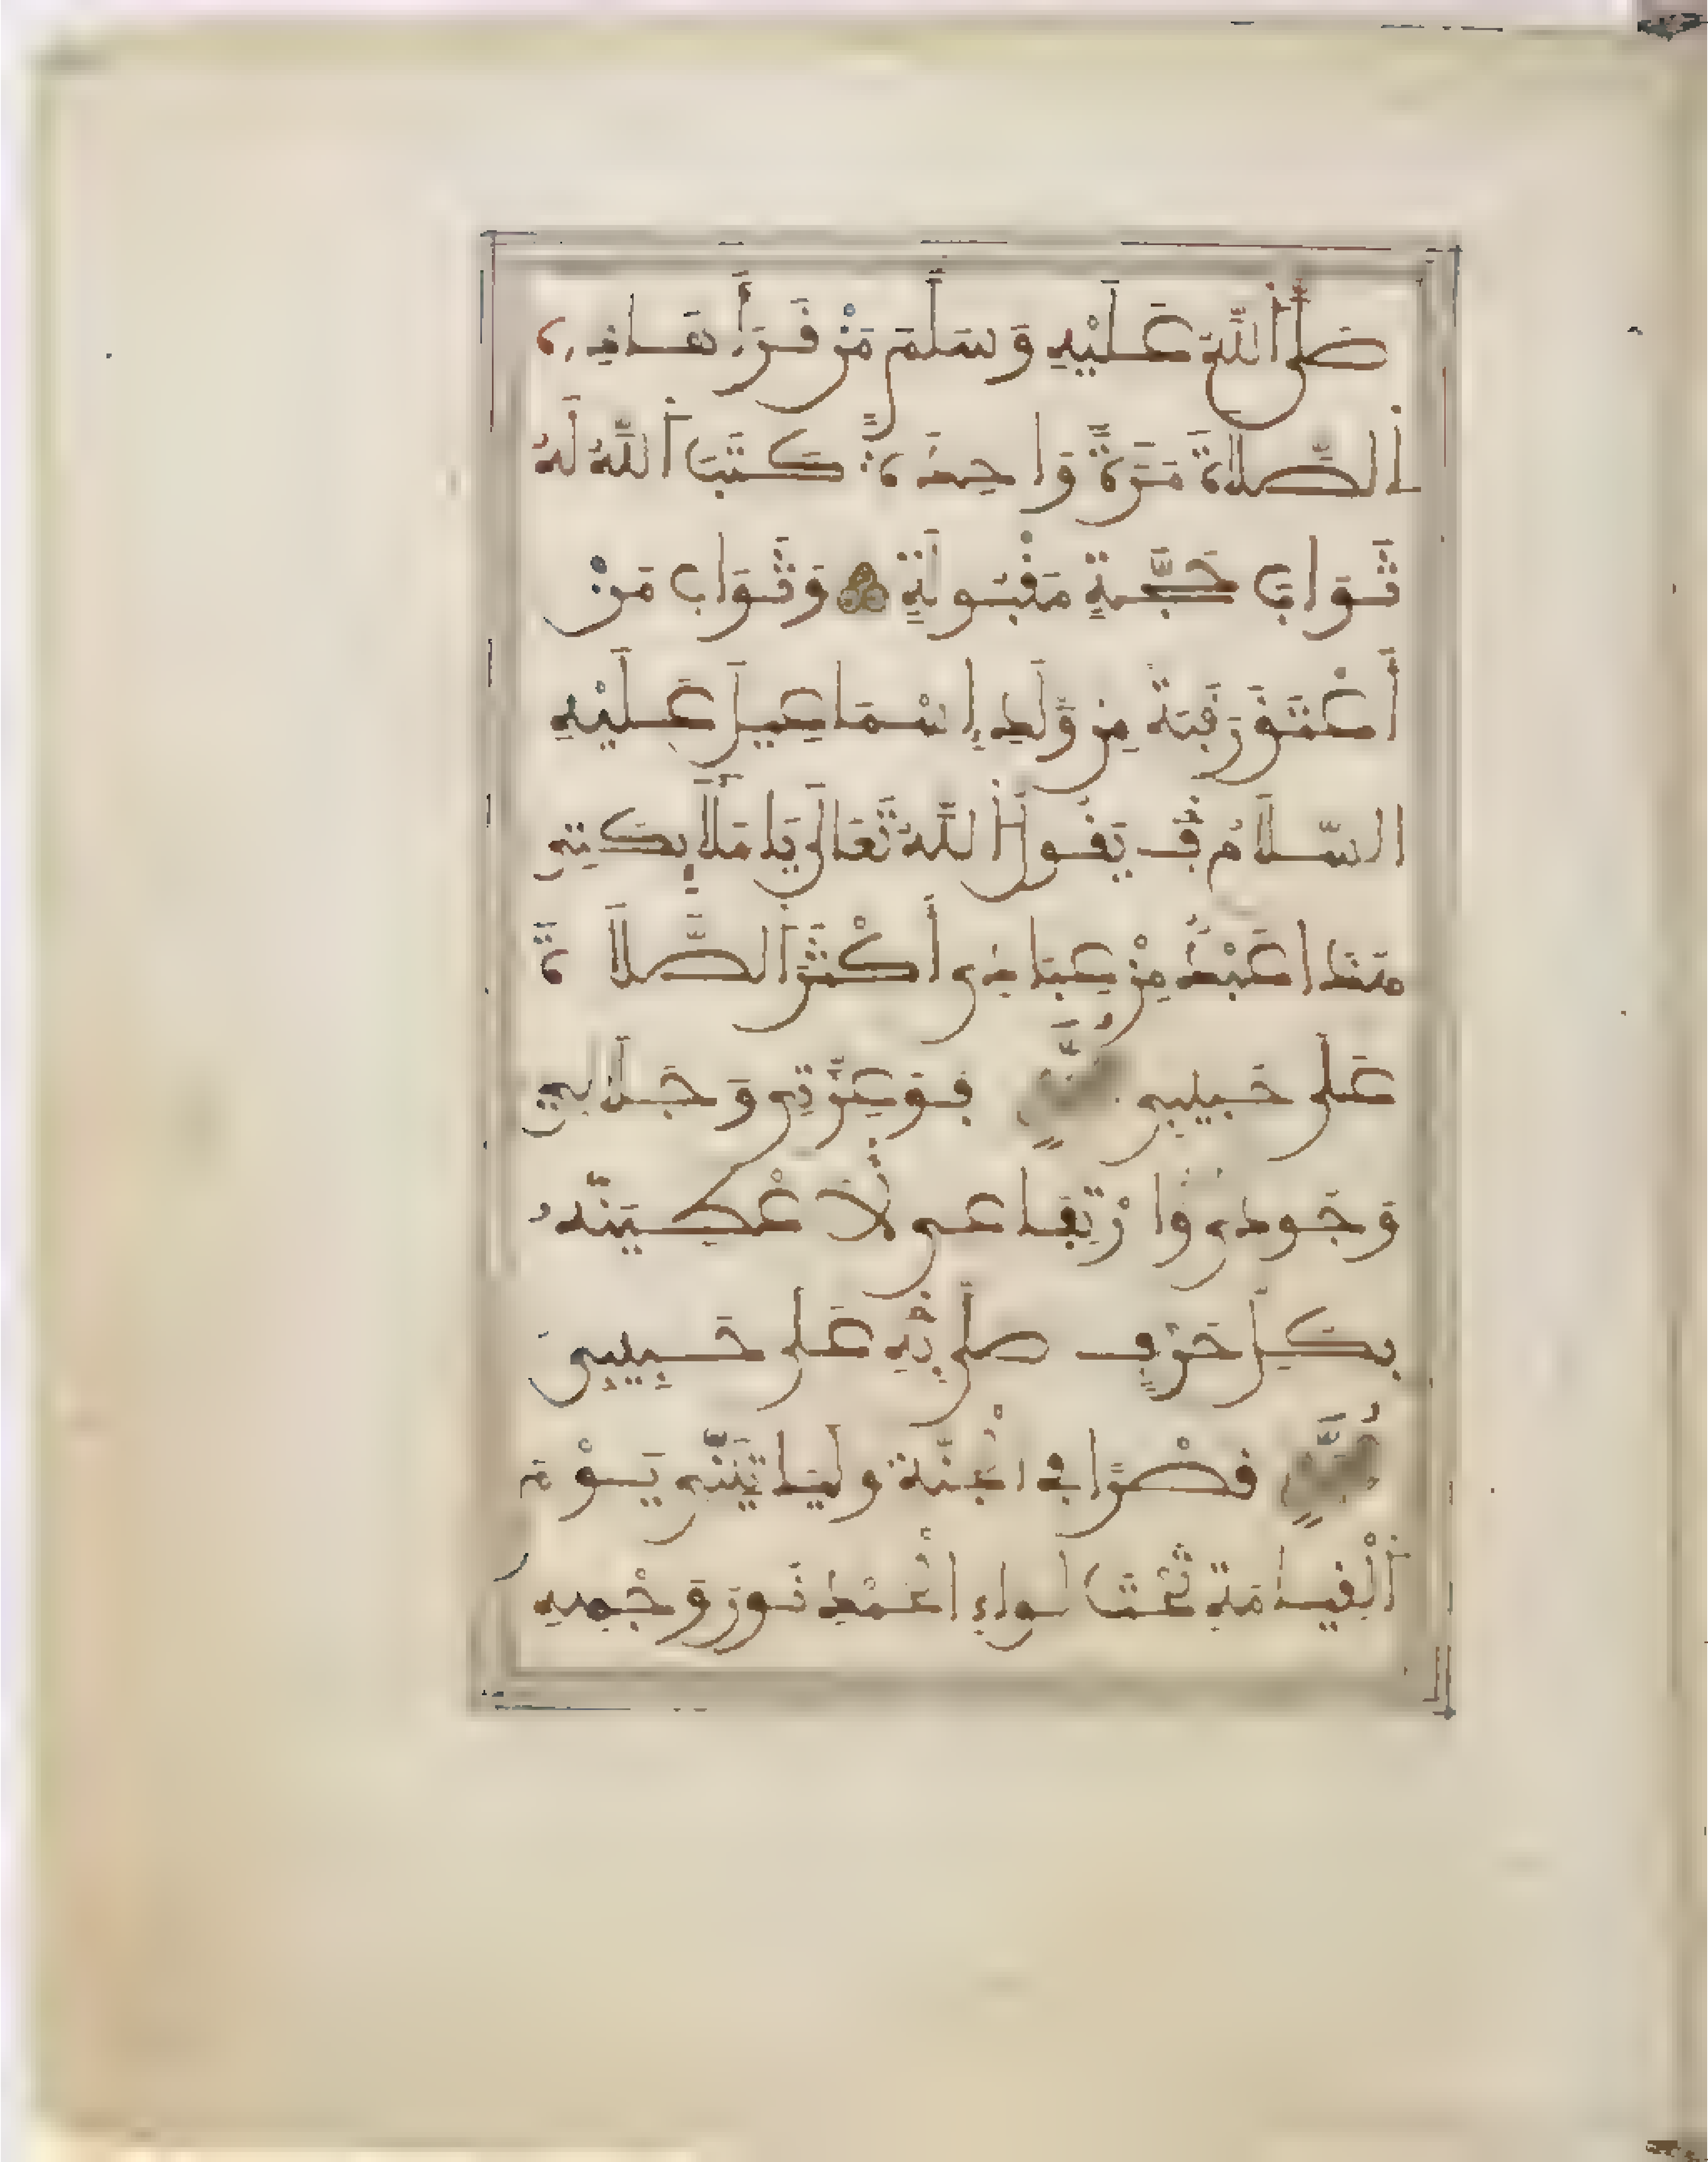 صَلَّى أَللَّهُ عَلَيْهِ وَسَلَّمَ مَنْ قَرَأَ هَاذِهِ
أَلصَّلَاةَ مَرَّةً وَاحِدَةً كَتَبَ أَللَّهُ لَهُ
ثَوَابَ حَجَّةٍ مَقْبُولَةٍ وَثَوَابَ مَنْ
أَعْتَقَ رَقَبَةً مِنْ وَلَدِ إِسْمَاعِيلَ عَلَيْهِ
السَّلَامُ فَيَقُولُ أَللَّهُ تَعَالَى يَا مَلَائِكَتِي
هَذَا عَبْدٌ مِنْ عِبَادِي أَكْثَرَ أَلصَّلَاةَ
عَلَى حَبِيبِي مُحَمَّدٍ فَوَعِزَّتِي وَجَلَالِي
وَجُودِي وَارْتِفَاعِي لَأُعْطِيَنَّهُ
بِكُلِّ حَرْفٍ صَلَّى بِهِ عَلَى حَبِيبِي
مُحَمَّدٍ قَصْرًا فِي الْجَنَّةِ وَلَيَأْتِيَنِّي يَوْمَ
أَلْقِيَامَةِ تَحْتَ لِوَاءِ الْحَمْدِ نُورُ وَجْهِهِ